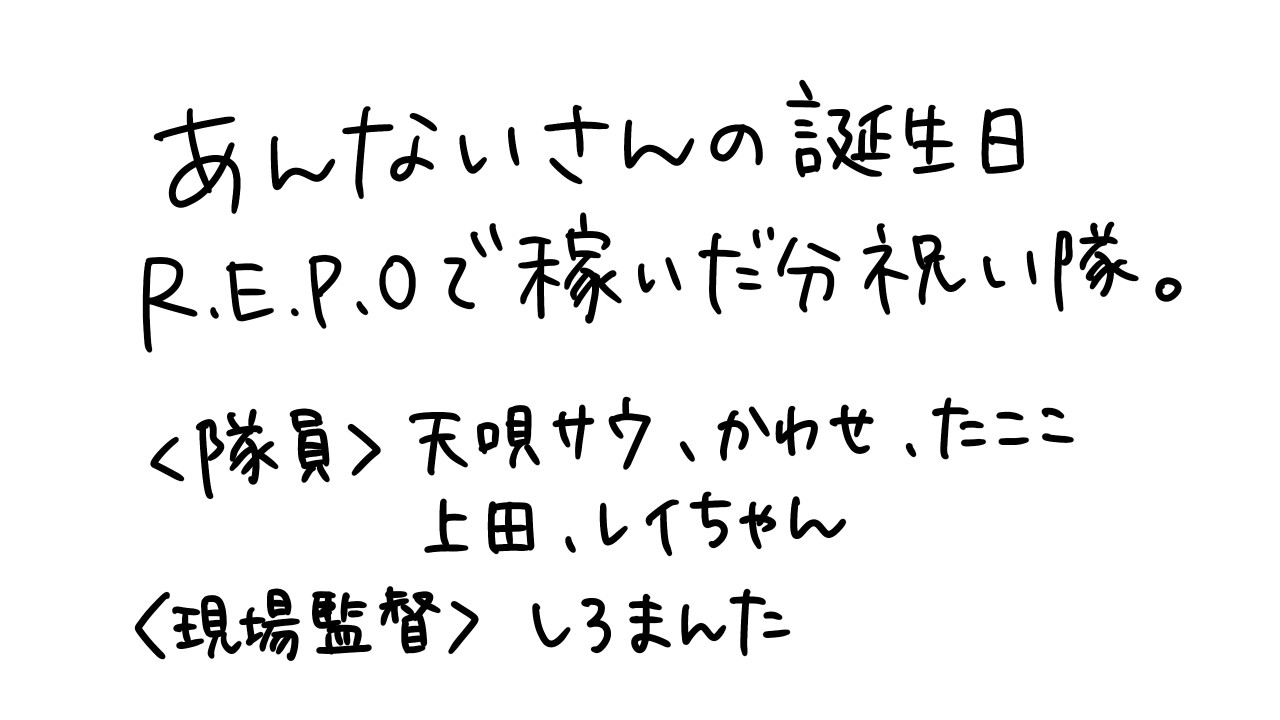 あんないさんの誕生日
R.E.P.Oで稼いだ分祝い隊。
<隊員>天唄サウ、かわせ、たここ
上田、レイちゃん
<現場監督>しろまんた